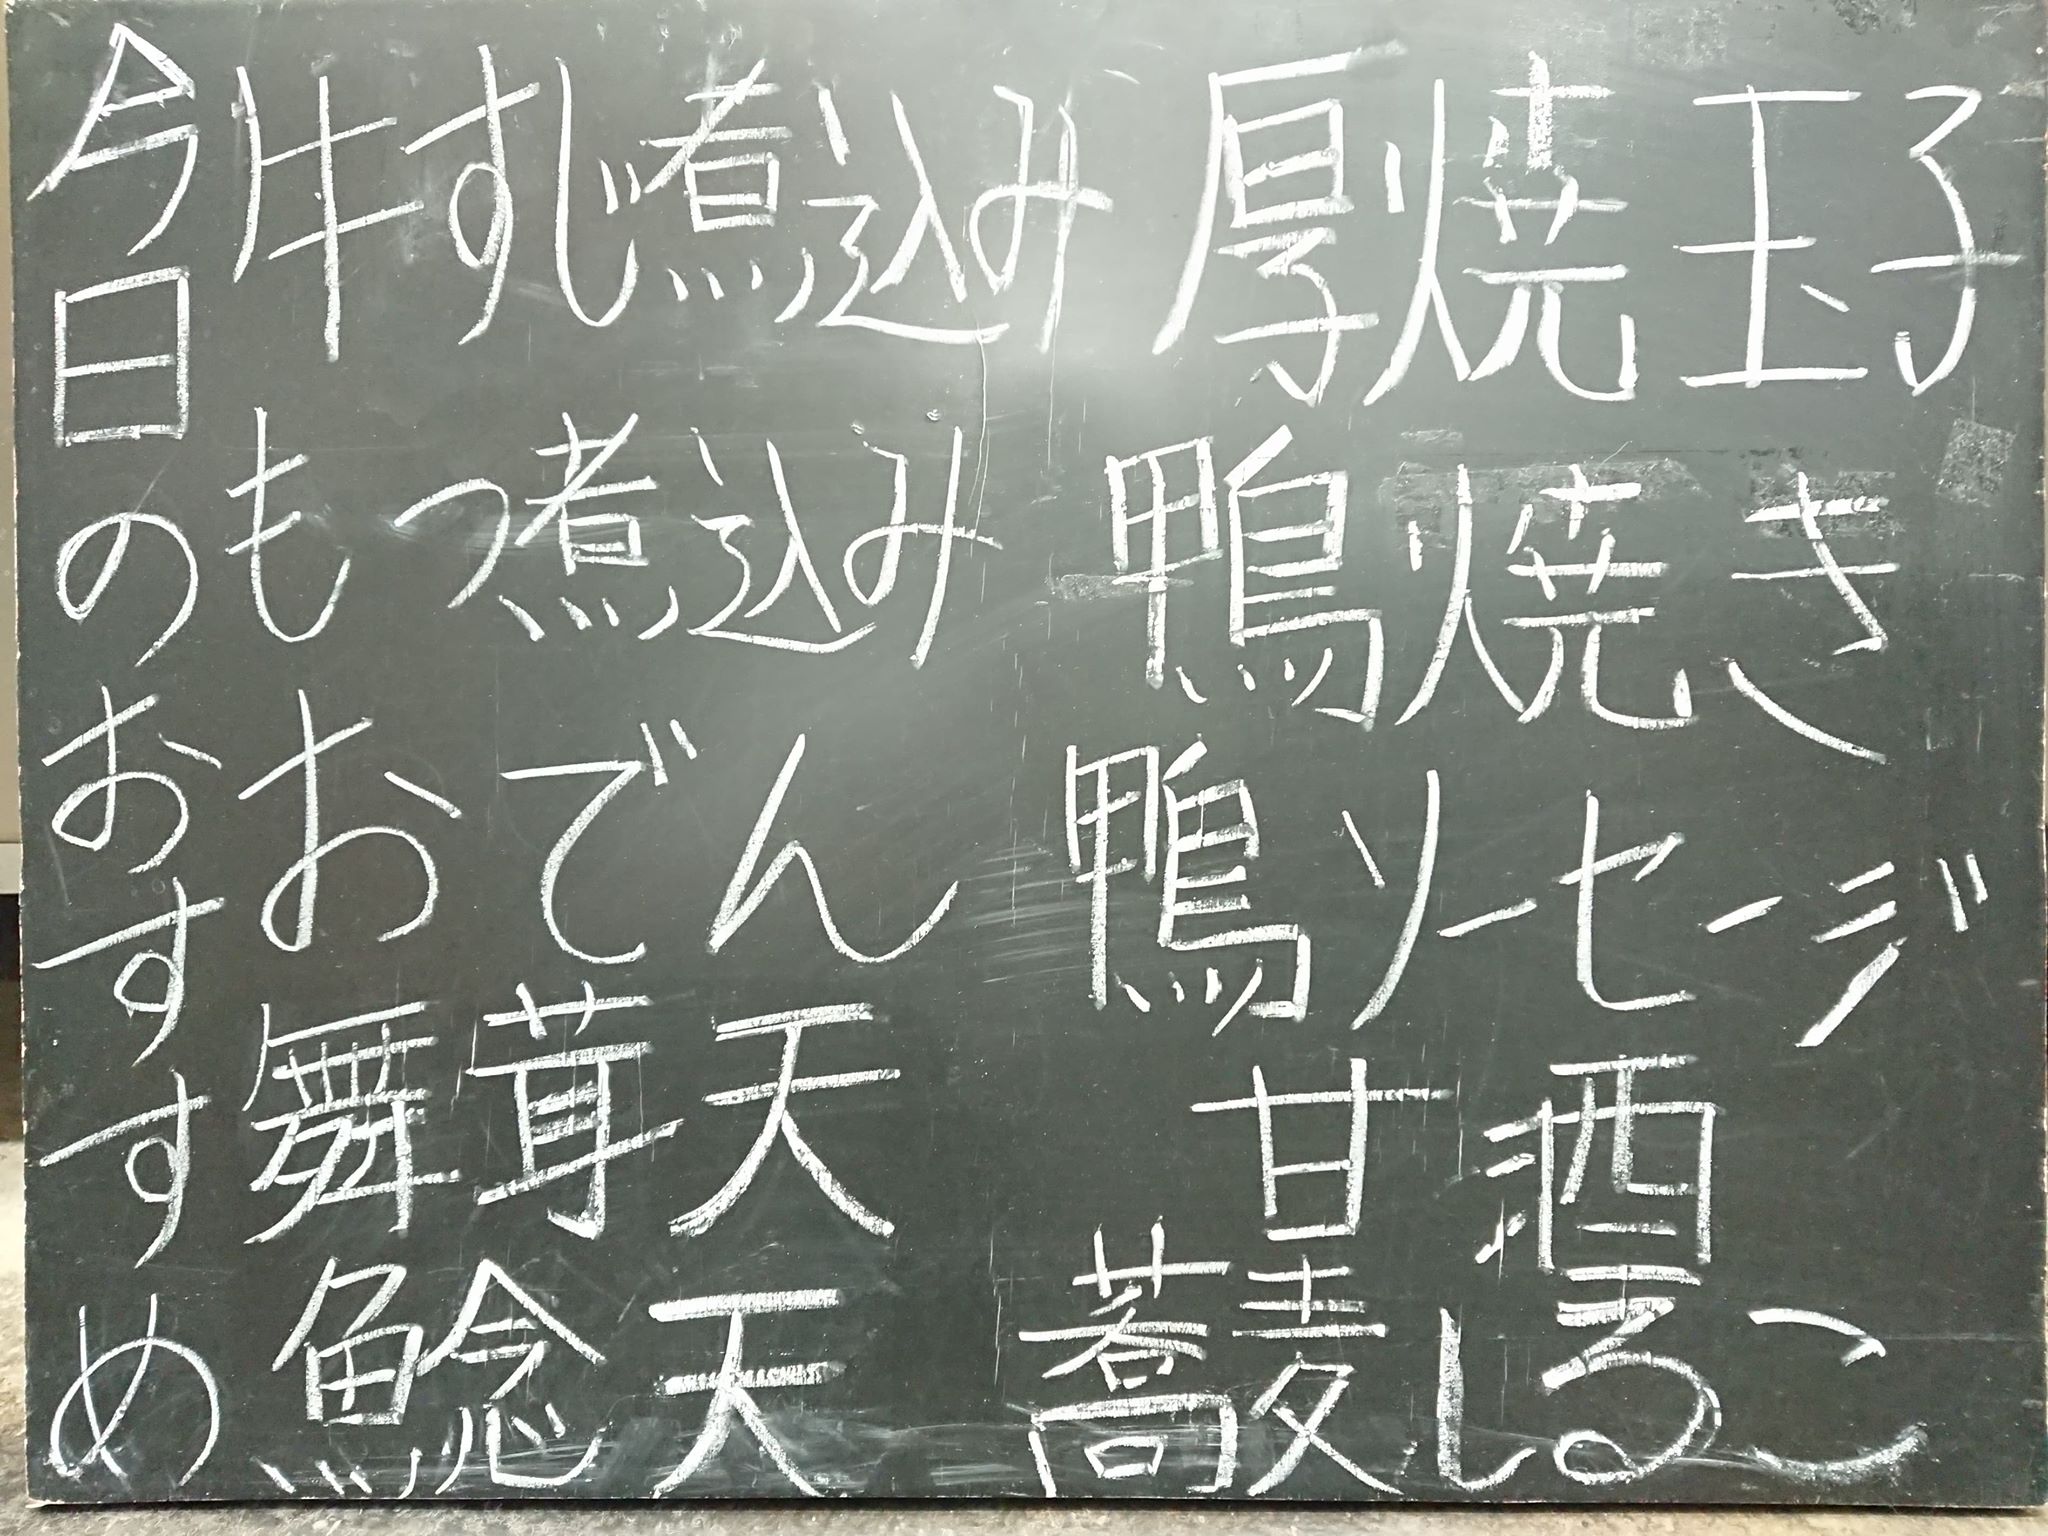 今日のおすすめ
牛すじ煮込み
もつ煮込み
おでん
舞茸天
鯰天
厚焼玉子
鴨焼き
鴨ソーセージ
甘酒
蕎麦しるこ